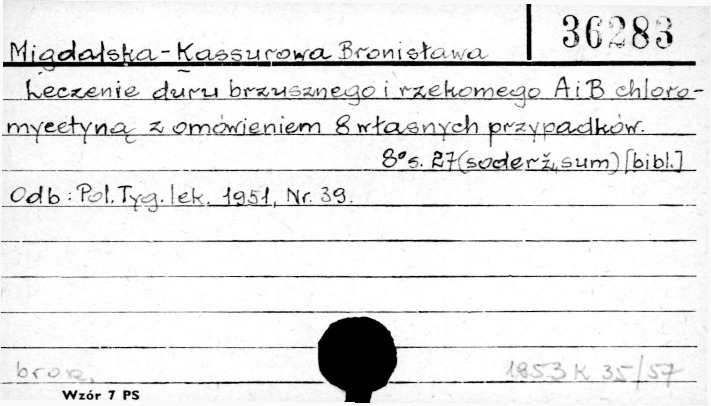 36283
Migdalska-Kassurowa Bronisława
Leczenie duru brzusznego i rzekomego A i B chloro-
mycetyną z omówieniem 8 własnych przypadków.
8° s. 27 (soderž, sum) [bibl.]
Odb: Pol. Tyg. lek. 1951, Nr. 39.
1953 K 35/57
Wzór 7 PS